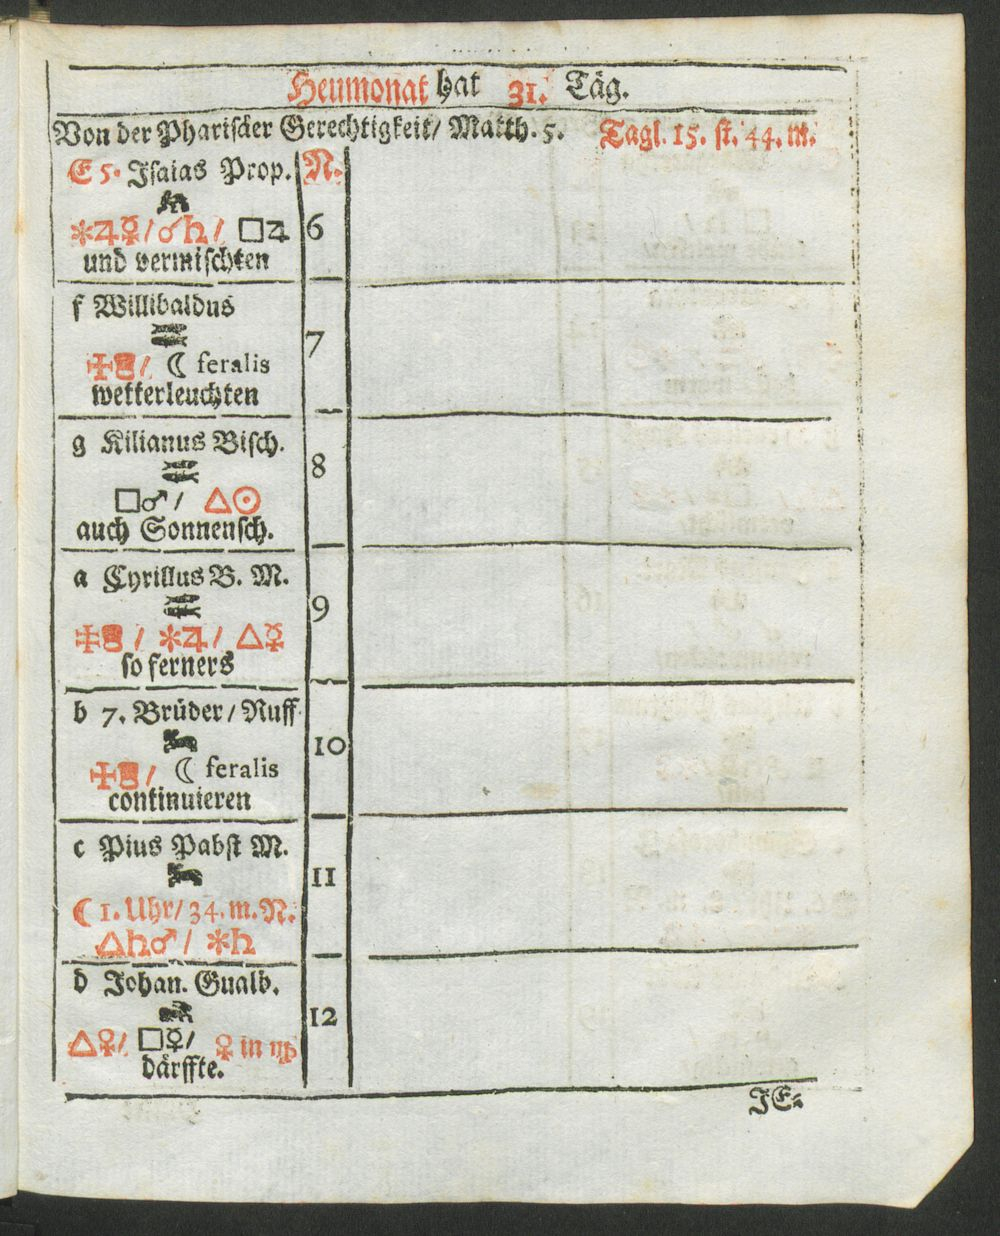 Heumonat hat 31. Täg.
Von der Phariseer Gerechtigkeit/ Matth. 5. Tagl. 15. st. 44. m.
E 5. Isaias Prop. N.
⚹♃☿/☌♄/ □♃ 6
und vermischten
f Willibaldus
♓ 7
☾ feralis
wetterleuchten
g Kilianus Bisch.
♓ 8
□♂/ △☉
auch Sonnensch.
a Cyrillus B. M.
♓ 9
/ ⚹♃/ △☿
so ferners
b 7. Brüder/ Ruff
♈ 10
☾ feralis
continuieren
c Pius Pabst M.
♈ 11
☾ 1. Uhr/ 34. m. N.
△♄♂/ ⚹♄
d Johan. Gualb.
12
△♀/ □☿/ ♀ in ♍
därffte.
JE-